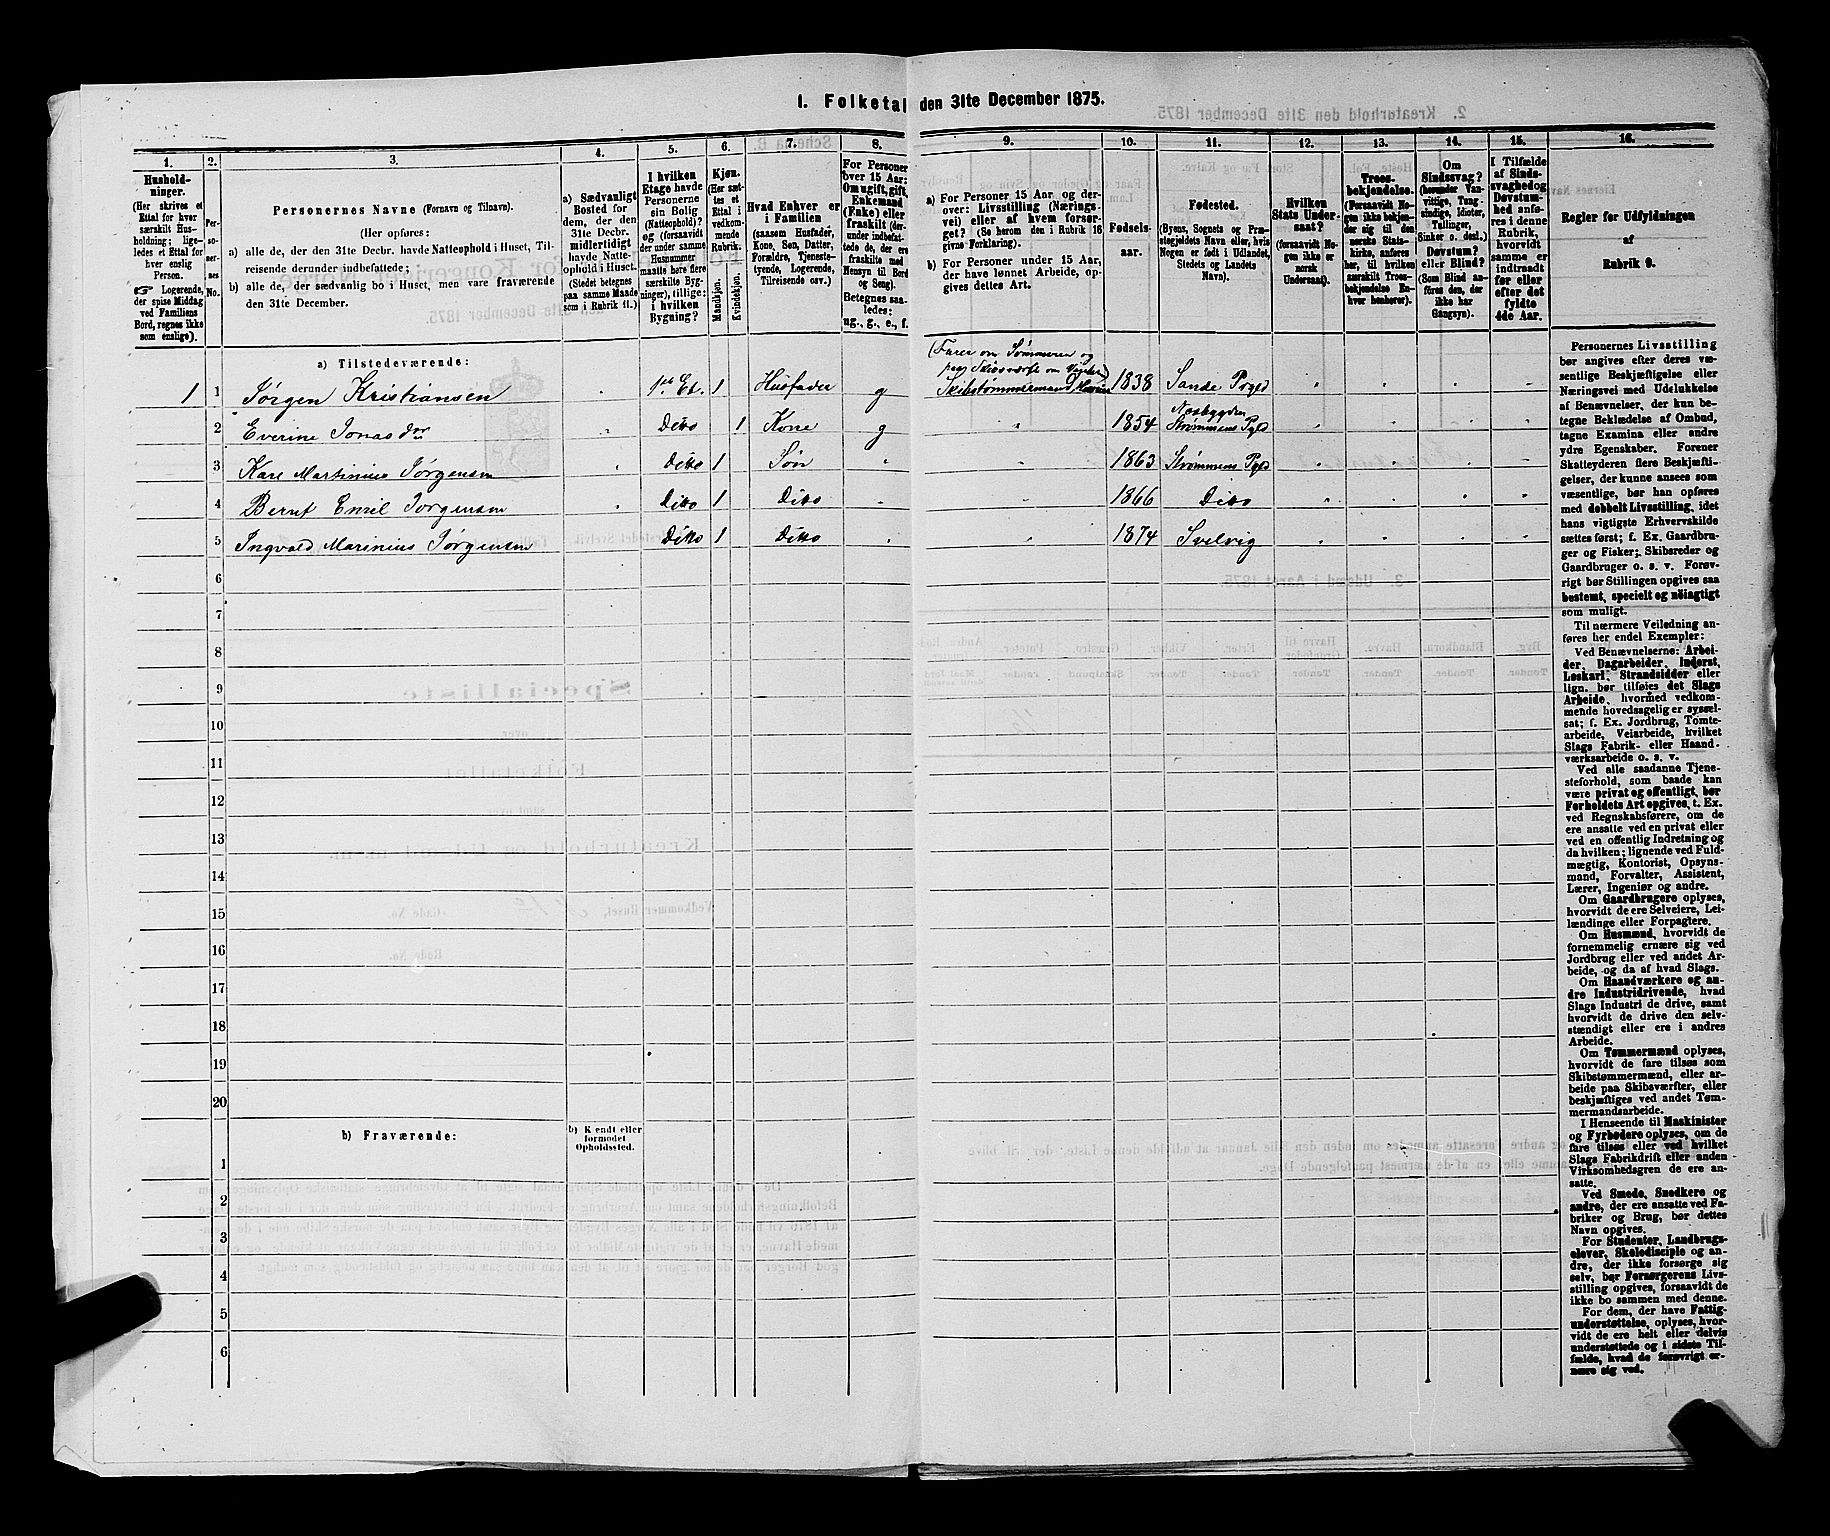 1. Folketal den 31te December 1875.
1.
2.
3.
4.
5.
6.
7.
8.
9.
10.
11.
12.
13.
14.
15.
16.
Hushold-
ninger.
(Her skrives et
Ettal for hver
særskilt Hus-
holdning; lige-
ledes et Ettal for
hver enslig
Person.
☞ Logerende,
der spise Middag
ved Familiens
Bord, regnes ikke
som enslige).
Per-
so-
ner-
nes
No.
Personernes Navne (Fornavn og Tilnavn).
(Her opføres:
a) alle de, der den 31te Decbr. havde Natteophold i Huset, Til-
reisende derunder indbefattede;
b) alle de, der sædvanlig bo i Huset, men vare fraværende
den 31te December.
a) Sædvanligt
Bosted for
dem, der den
31te Decbr.
midlertidigt
havde Natte-
ophold i Huset.
(Stedet betegnes
paa samme Maade
som i Rubrik 11.)
I hvilken
Etage havde
Personerne
sin Bolig
(Natteophold)?
og (forsaavidt
der under samme
Husnummer
maatte høre flere
særskilte Byg-
ninger), tillige:
i hvilken
Bygning?
Kjøn.
(Her sæt-
tes et
Ettal i
vedkom-
mende
Rubrik.
Mandkjøn.
Kvindekjøn.
Hvad Enhver er
i Familien
(saasom Husfader,
Kone, Søn, Datter,
Forældre, Tjeneste-
tyende, Logerende,
Tilreisende osv.)
For Personer
over 15 Aar:
Om ugift, gift,
Enkemand
(Enke) eller
fraskilt (der-
under indbefat-
tede de, der ere
fraskilte med
Hensyn til Bord
og Seng).
Betegnes saa-
ledes:
ug., g., e., f.
a) For Personer 15 Aar og der-
over: Livsstilling (Nærings-
vei) eller af hvem forsør-
get? (Se herom den i Rubrik 16
givne Forklaring).
b) For Personer under 15 Aar,
der have lønnet Arbeide, op-
gives dettes Art.
Fødsels-
aar.
Fødested.
(Byens, Sognets og Præ-
stegjeldets Navn eller, hvis
Nogen er født i Udlandet,
Stedets og Landets
Navn).
Hvilken
Stats Under-
saat?
(forsaavidt No-
gen ikke er
norsk
Undersaat).
Troes-
bekjendelse.
(Forsaavidt No-
gen ikke bekjen-
der sig til den
norske Stats-
kirke, anføres
her, til hvilken
særskilt Troes-
bekjendelse En-
hver henhører).
Om
Sindssvag?
(herunder Van-
vittige, Tung-
sindige, Idioter,
Tullinger,
Sinker o. desl.)
Døvstum?
eller Blind?
(Som Blind an-
føres den, der
ikke har
Gangsyn).
I Tilfælde
af Sinds-
svaghed og
Døvstum-
hed anfø-
res i denne
Rubrik,
hvorvidt
samme er
indtraadt
før eller
efter det
fyldte
4de Aar.
Regler for Udfyldningen
af
Rubrik 9.
a) Tilstedeværende:
(Farer om Sømmeren og
paa Skibsværft om
1 1 Jørgen Kristiansen „ 1ste Et. 1 Husfader g Skibstømmermand 1838 Sande Pgld „ „ „ „
Næsbygden
2 Everine Jonasdor „ Ditto 1 Kone g „ 1854 Strømmens Pgld „ „ „ „
3 Karl Martinius Jørgensen „ Ditto 1 Søn „ „ 1863 Strømmens Pgld „ „ „ „
4 Bernt Emil Jørgensen „ Ditto 1 Ditto „ „ 1866 Ditto „ „ „ „
5 Ingvald Marinius Jørgensen Ditto 1 Ditto „ „ 1874 Svelvig „ „ „ „
6
7
8
9
10
11
12
13
14
15
16
17
18
19
20
b) Fraværende:
b) Kjendt eller
formodet
Opholdssted.
1
2
3
4
5
6
Personernes Livsstilling
bør angives efter deres væ-
sentlige Beskjæftigelse eller
Næringsvei med Udelukkelse
af Benævnelser, der kun be-
tegne Beklædelse af Ombud,
tagne Examina eller andre
ydre Egenskaber. Forener
Skatteyderen flere Beskjæfti-
gelser, der kunne ansees som
væsentlige, bør han opføres
med dobbelt Livsstilling, idet
hans vigtigste Erhvervskilde
sættes først; f. Ex. Gaardbru-
ger og Fisker; Skibsreder og
Gaardbruger o. s. v. Forøv-
rigt bør Stillingen opgives saa
bestemt, specielt og nøiagtigt
som muligt.
Til nærmere Veiledning an-
føres her endel Exempler:
Ved Benævnelserne: Arbei-
der, Dagarbeider, Inderst,
Løskarl, Strandsidder eller
lign. bør tilføies det Slags
Arbeide, hvormed vedkom-
mende hovedsagelig er syssel-
sat; f. Ex. Jordbrug, Tomte-
arbeide, Veiarbeide, hvilket
Slags Fabrik- eller Haand-
værksarbeide o. s. v.
Ved alle saadanne Tjene-
steforhold, som baade kan
være privat og offentligt, bør
Forholdets Art opgives, t. Ex.
ved Regnskabsførere, om de
ere ansatte ved en privat eller
ved en offentlig Indretning og
da hvilken; lignende ved Fuld-
mægtig, Kontorist, Opsyns-
mand, Forvalter, Assistent,
Lærer, Ingeniør og andre.
Om Gaardbrugere oplyses,
hvorvidt de ere Selveiere, Lei-
lændinge eller Forpagtere.
Om Husmænd, hvorvidt de
fornemmelig ernære sig ved
Jordbrug eller ved andet Ar-
beide, og da af hvad Slags.
Om Haandværkere og an-
dre Industridrivende, hvad
Slags Industri de drive, samt
hvorvidt de drive den selv-
stændigt eller ere i andres
Arbeide.
Om Tømmermænd oplyses,
hvorvidt de fare tilsøs som
Skibstømmermænd, eller ar-
beide paa Skibsværfter, eller
beskjæftiges ved andet Tøm-
mermandsarbeide.
I Henseende til Maskinister
og Fyrbødere oplyses, om de
fare tilsøs eller ved hvilket
Slags Fabrikdrift eller anden
Virksomhedsgren de ere an-
satte.
Ved Smede, Snedkere og
andre, der ere ansatte ved Fa-
briker og Brug, bør dettes
Navn opgives.
For Studenter, Landbrugs-
elever, Skoledisciple og an-
dre, der ikke forsørge sig
selv, bør Forsørgerens Livs-
stilling opgives, forsaavidt de
ikke bo sammen med denne.
For dem, der have Fattig-
understøttelse, oplyses, hvor-
vidt de ere helt eller delvis
understøttede og i sidste Til-
fælde, hvad de forøvrigt er-
nære sig ved.